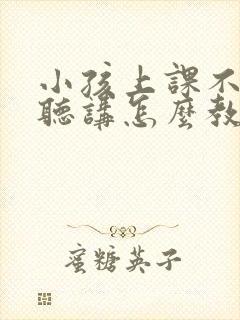 小孩上課不
聽講怎麼教
蜜糖英子